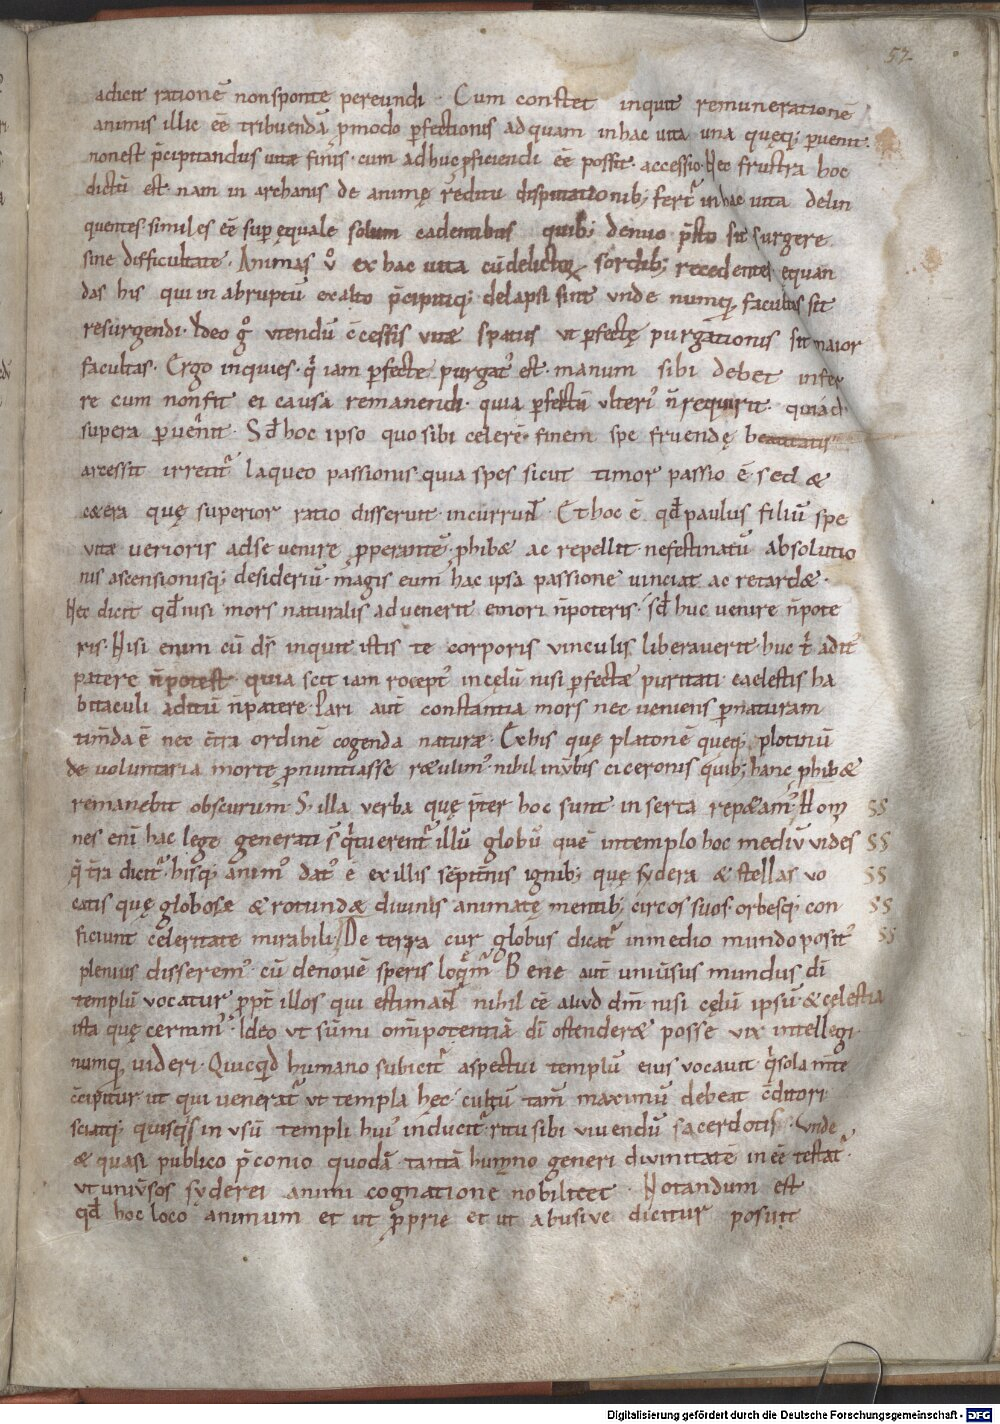 52
adicit rationē nonsponte pereundi · Cum constet inquit remunerationē
animis illic eē tribuendā ꝑmodo ꝑfectionis adquam inhac uita una quęq; ꝑuenit·
nonest p̄cipitandus uitæ finis · cum adhuc ꝓficiendi eē possit accessio· Nec frustra hoc
dictū est· nam in archanis de animę reditu disputationib; fert᷒ inhac uita delin
quentes similes eē sup̱ ęquale solum cadentibus quib; denuo p̄sto sit surgere
sine difficultate · Animas ů ex hac uita cū delictoꝝ sordib; recedentes ęquan
das his qui in abruptū ex alto p̄cipitiq; delapsi sint unde numq̄ facultas sit
resurgendi · Ideo g̊ utendū c̄cessis uitæ spatiis ut ꝑfectę purgationis sit maior
facultas · Ergo inquies · q̇ iam ꝑfecte purgat᷒ est · manum sibi debet infer
re cum nonsit ei causa remanendi · quia ꝑfectū ulteri᷒ n̄ requirit · qui ad
supera ꝑuenit · Sꝺ hoc ipso quo sibi celerē finem spe fruendę beatitatis
arcessit irretit᷒ laqueo passionis quia spes sicut timor passio ē · sed &
cætera quę superior ratio disseruit incurrunt · Et hoc ē qđ paulus filiū spe
uitæ uerioris adse uenire ꝓperantē ꝓhibæ ac repellit · nefestinatū absolutio
nis ascensionisq; desideriū · magis eum hac ipsa passione uinciat ac retardæ ·
Nec dicit qđ nisi mors naturalis aduenerit emori n̄poteris · sđ huc uenire n̄pote
ris · Nisi enim cū dꝭ inquit istis te corporis uinculis liberauerit · huc t̄ adit᷒
patere n̄potest quia scit iam recept᷒ incęlū nisi ꝑfectæ puritati caelestis ha
bitaculi aditū n̄patere · Pari aut̄ constantia mors nec ueniens ꝑnaturam
tim̄da ē nec c̄tra ordinē cogenda naturæ · Ex his quę platonē queq; plotinū
de uoluntaria morte ꝓnuntiasse rætulim᷒ · nihil in ūbis ciceronis quib; hanc ꝓhibæ
remanebit obscurum S; illa uerba quę p̄ter hoc sunt inserta repætam᷒ Homi SS
nes eni hac lege generati s̄ q̇ tuerent᷒ illū globū quē intemplo hoc mediū uides SS
q̄ t̄ra dicit᷒ · hisq; anim᷒ dat᷒ ē ex illis sēpit̄nis ignib; quę sydera & stellas uo SS
catis quę globosę & rotundæ diuinis animatę mentib; circos suos · orbesq; con SS
ficiunt celeritate mirabili De terra cur globus dicat᷒ inmedio mundo posit᷒ SS
plenius disserem᷒ · cū denouē speris loq̄m᷒ Bene aut̄ uniūsus mundus dī
templū uocatur ꝓpt̄ illos qui estimant nihil eē aliud dm̄ nisi cęlū ipsū & cęlestia
ista quę cernim᷒ · Ideo ut sūmi om̄ipotentiā dī ostenderæ posse uix intellegi
numq̄ uideri · Quicqđ humano subicit᷒ aspectui templū eius uocauit q̇sola m̄te
c̄cipitur · ut qui uenerat᷒ ut templa hęc cultū tam̄ maximū debeat c̄ditori
sciatq; quisq̇s in usū templi hui᷒ inducit᷒ · ritu sibi uiuendū sacerdotis · unde
& quasi publico p̄conio quodā tantā humano generi diuinitatē inēē testat᷒ ·
ut uniūsos syderei animi cognatione nobilitet · Notandum est
qđ hoc loco animum et ut ꝓprie et ut abusiue dicitur posuit
Digitalisierung gefördert durch die Deutsche Forschungsgemeinschaft - DFG